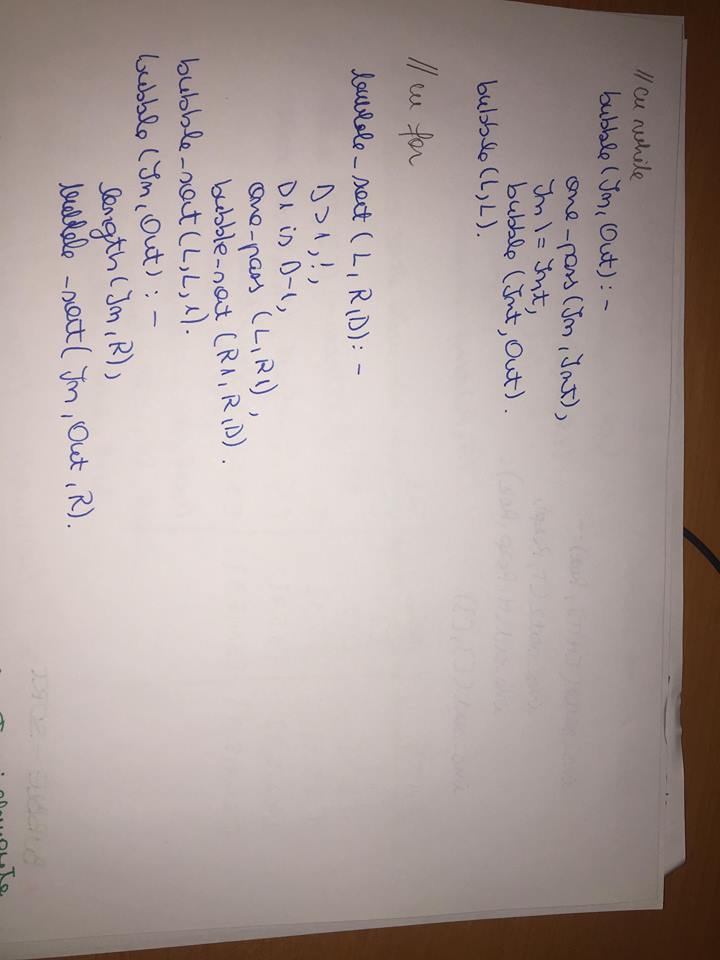 // cu while
bubble(In, Out):-
one-pass(In, Int),
In \= Int,
bubble (Int, Out).
bubble(L,L).
// cu for
bubble-sort (L, R, D):-
D>1,!,
D1 is D-1,
one-pass (L, R1),
bubble-sort (R1, R, D).
bubble-sort(L,L,1).
bubble(In, Out):-
length(In, R),
bubble-sort(In, Out, R).
BUBBLE-SORT